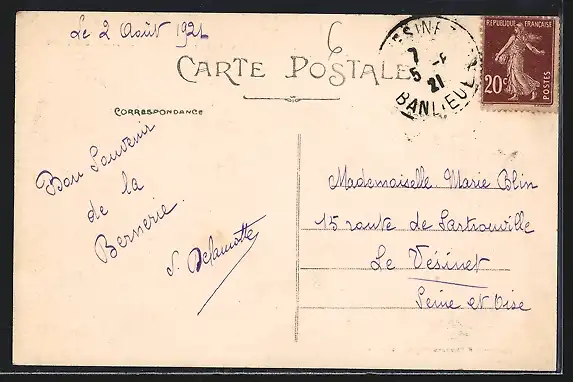 Le 2 Août 1921
6
CARTE POSTALE
RÉPUBLIQUE FRANÇAISE
20c
POSTES
7
5
21
BANLIEUE
CORRESPONDANCE
Bon Souvenir
de la
Bernerie.
S. Delamotte
Mademoiselle Marie Blin
15 route de Sartrouville
Le Vésinet
Seine et Oise